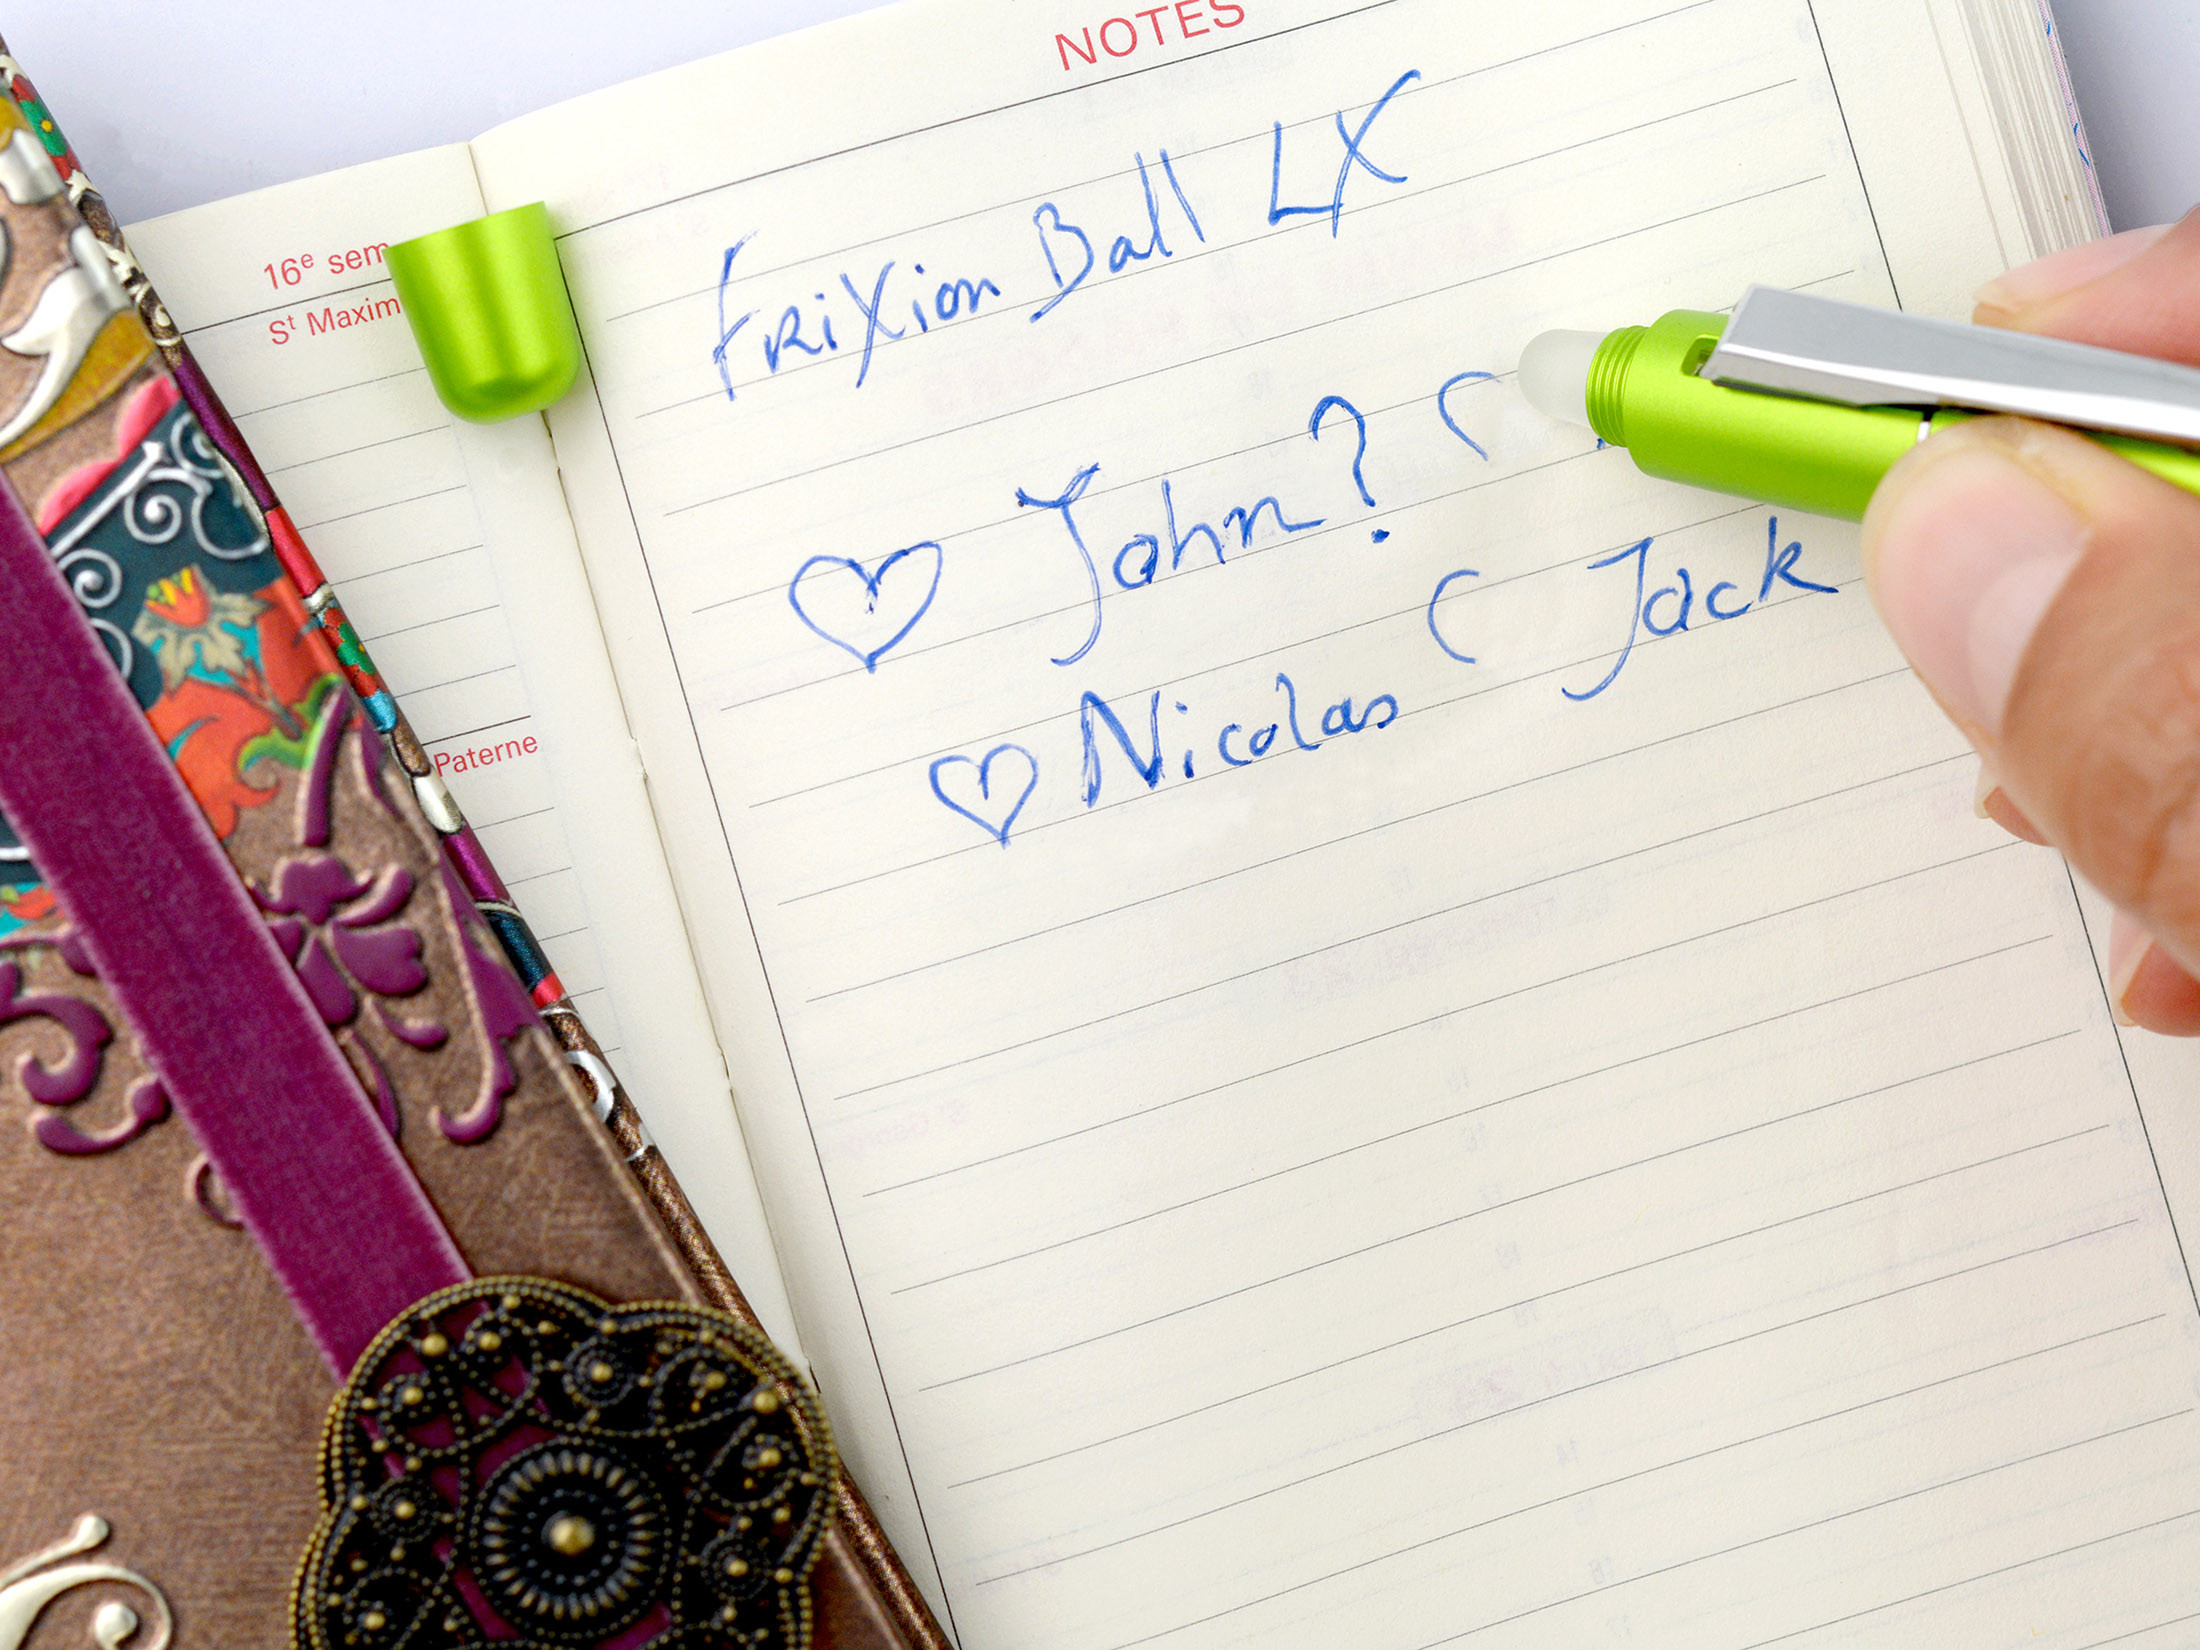 NOTES
16e sem
St Maxim
Paterne
FriXion Ball LX
John?
Jack
Nicolas